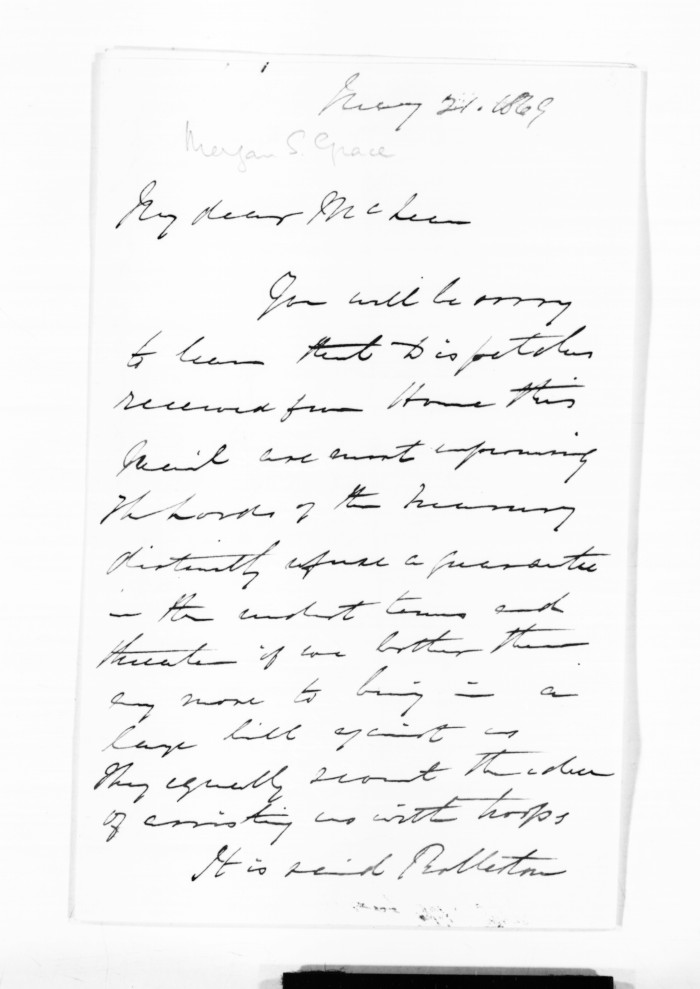 May 21. 1869
Morgan S. Grace
My dear McLean
You will be sorry
to learn that Dispatches
received from Home this
Mail are most unpromising
The Lords of the Treasury
distinctly refuse a guarantee
in the rudest terms and
threaten if we bother them
any more to bring in a
large bill against us
They equally scout the idea
of assisting us with troops
It is said Rolleston